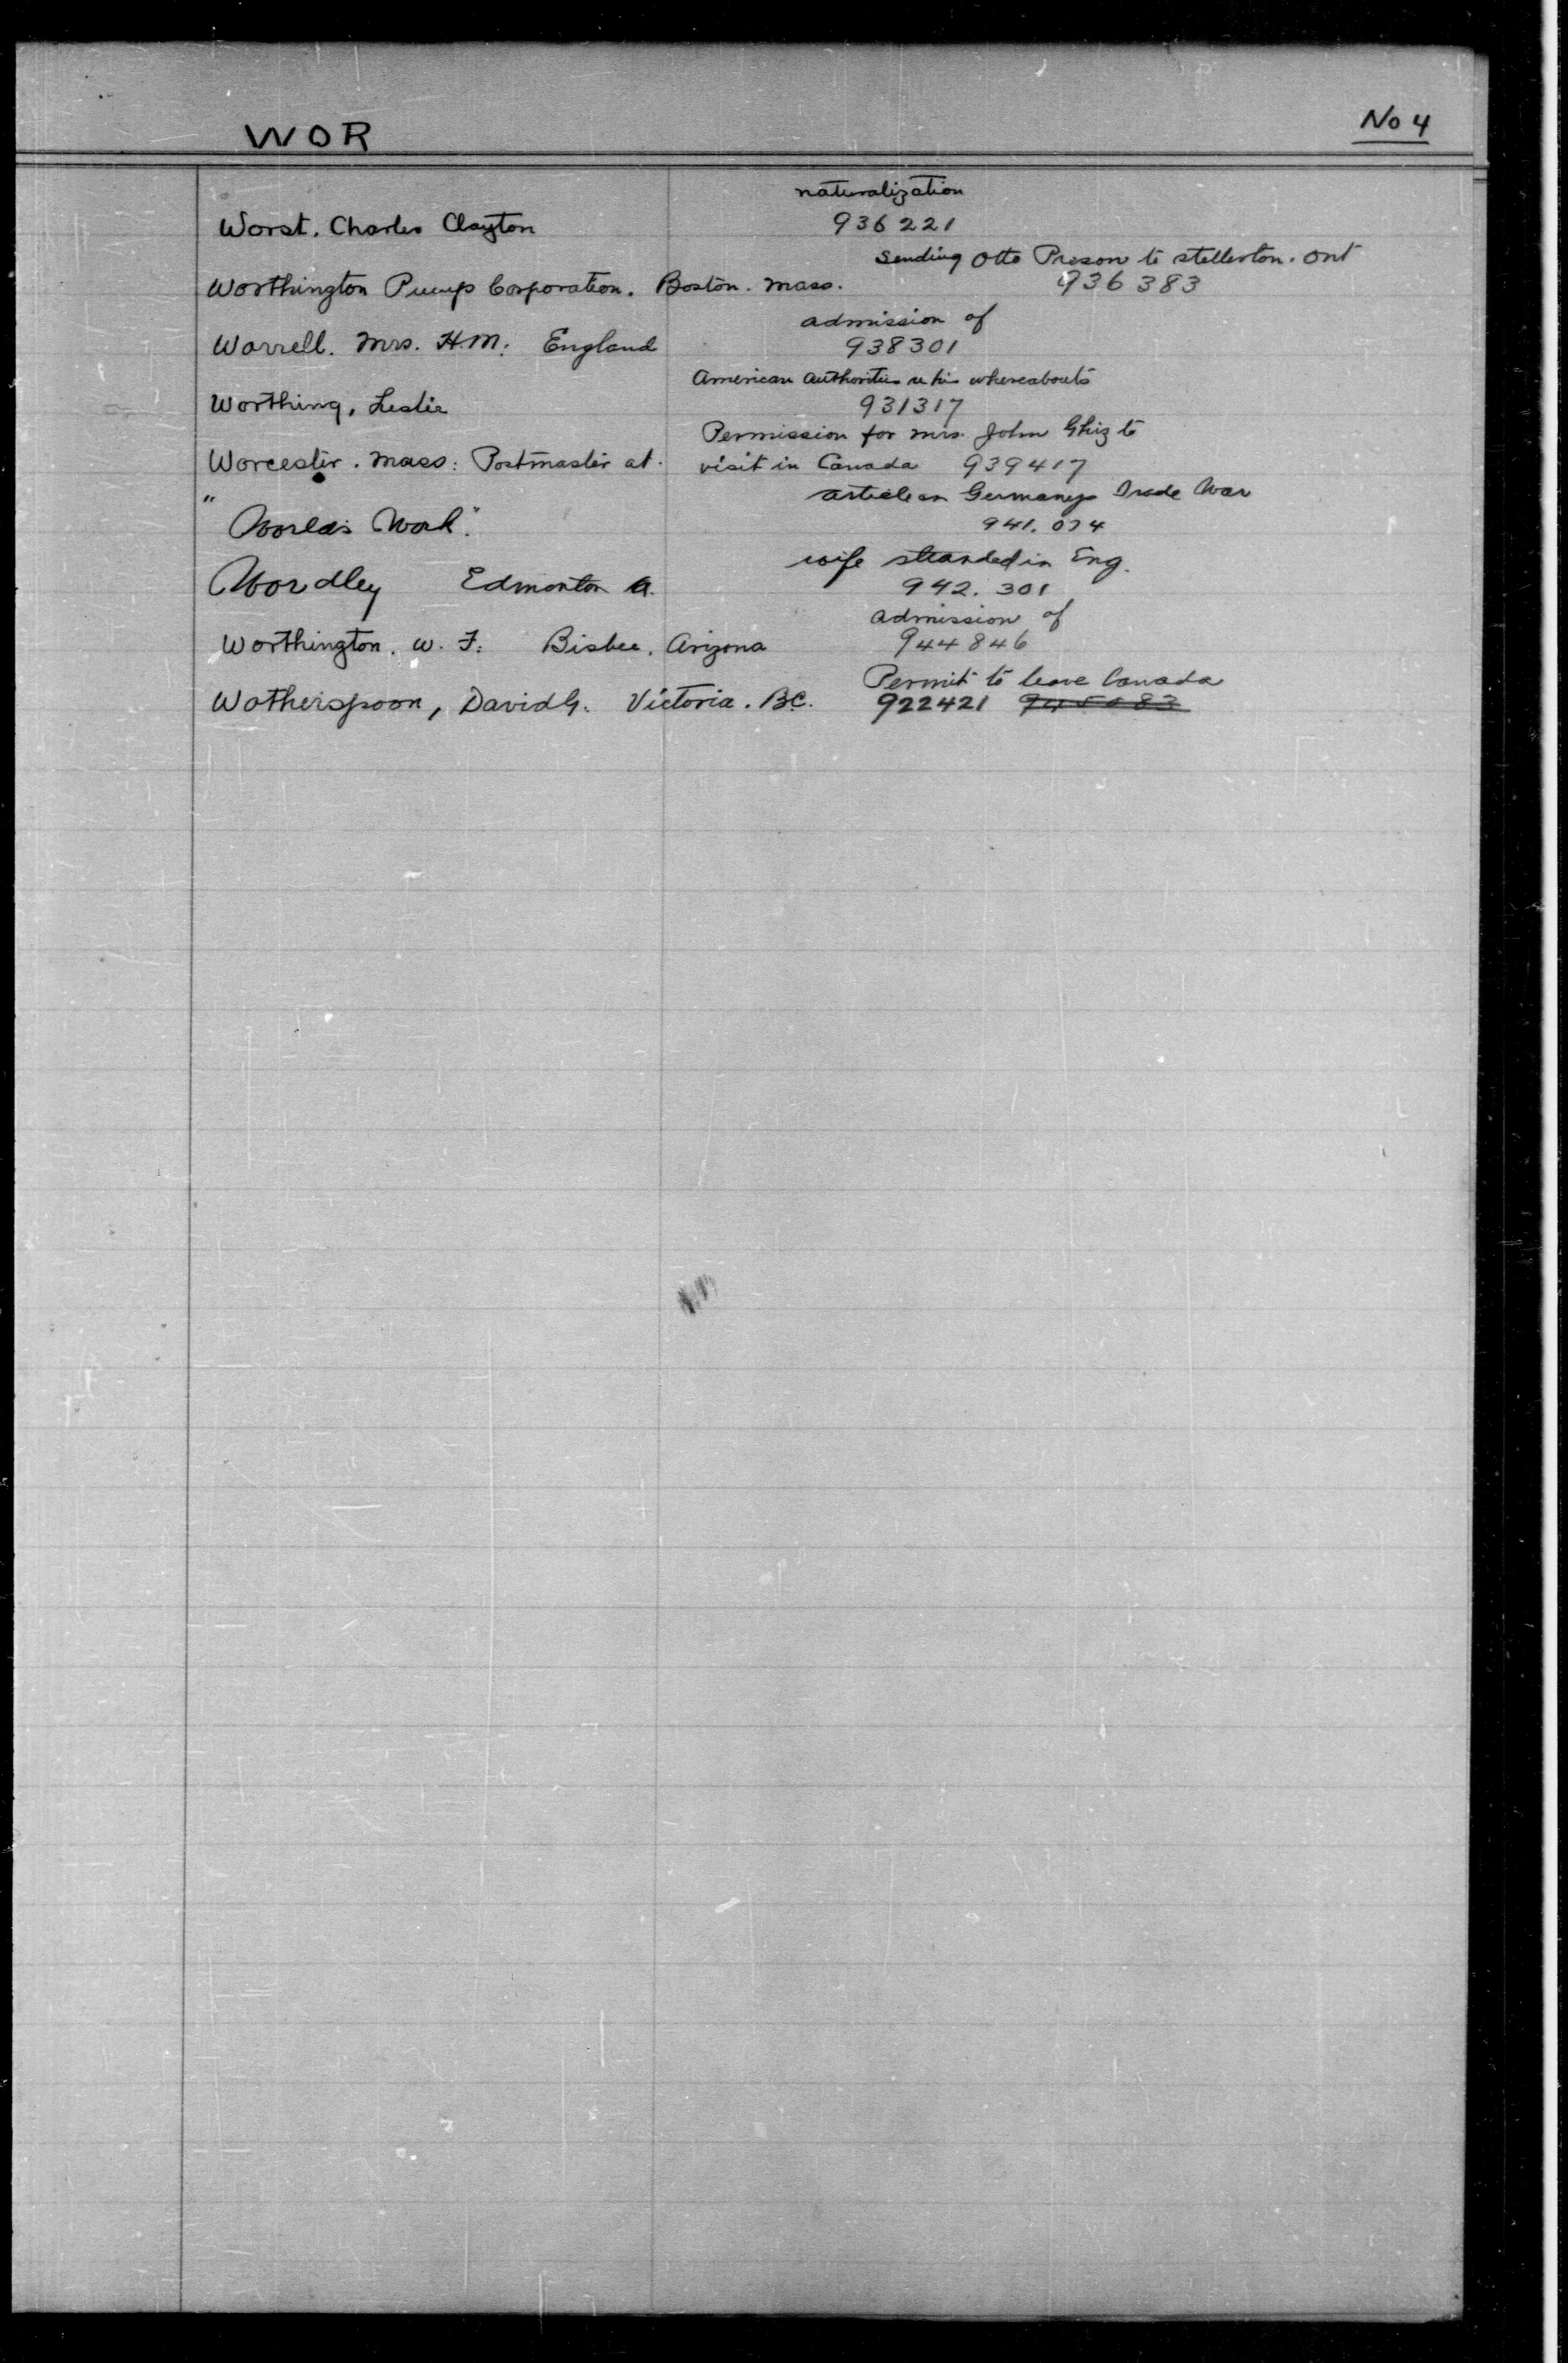 WOR
No 4
naturalization
Worst. Charles Clayton 936221
sending Otto Preson to stellerton. Ont
Worthington Pump Corporation. Boston. Mass. 936383
admission of
Worrell. Mrs. H.M: England 938301
American Authorities re his whereabouts
Worthing, Leslie 931317
Permission for Mrs. John Ghiz to
Worcester. Mass: Postmaster at. visit in Canada 939417
article on Germanys Trade War
"World's Work". 941.074
wife stranded in Eng.
Wordley Edmonton A. 942.301
admission of
Worthington. W. F: Bisbee. Arizona 944846
Permit to leave Canada
Wotherspoon, David G. Victoria. B.C. 922421